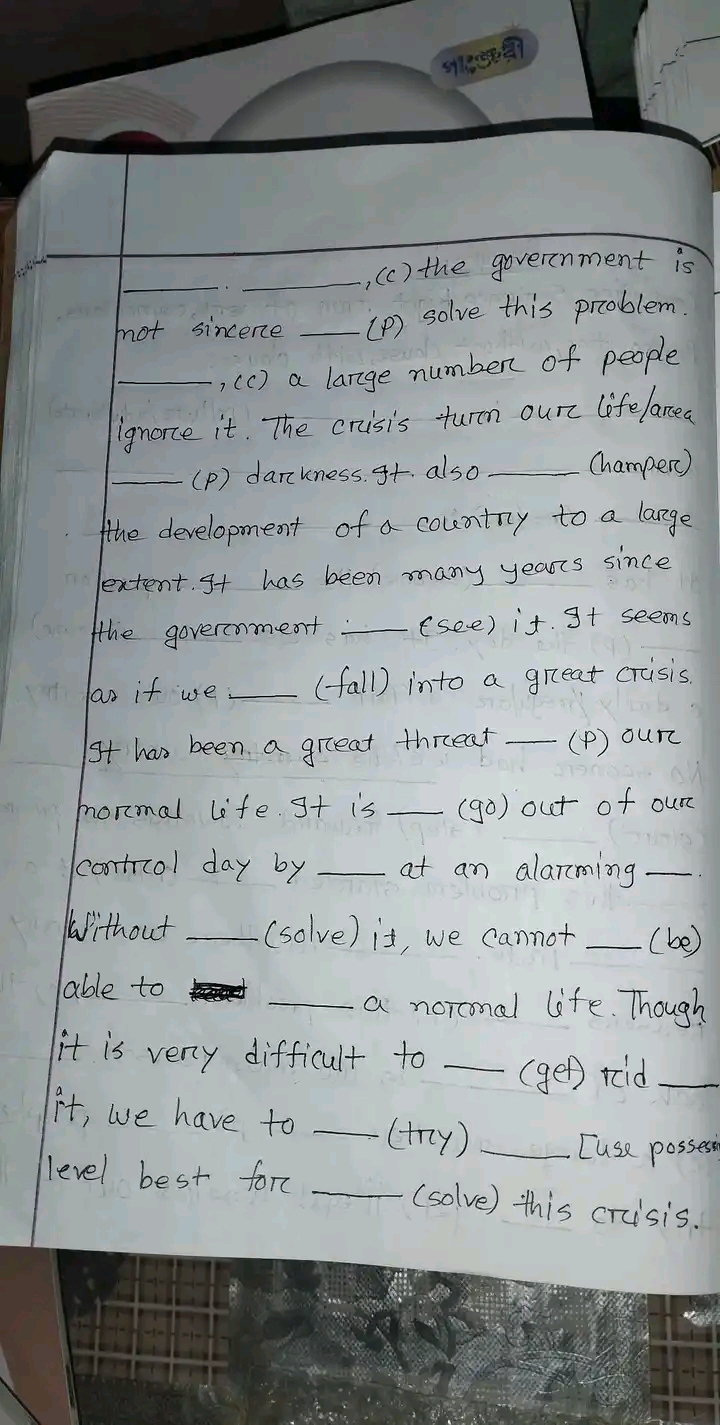 পাঞ্জেরী
____. ____, (c) the government is
not sincere ____ (P) solve this problem.
____, (c) a large number of people
ignore it. The crisis turn our life/area
____ (P) darkness. It also ____ (hamper)
the development of a country to a large
extent. It has been many years since
the government ____ (see) it. It seems
as if we ____ (fall) into a great crisis.
It has been a great threat ____ (P) our
normal life. It is ____ (go) out of our
control day by ____ at an alarming ____.
Without ____ (solve) it, we cannot ____ (be)
able to ____ a normal life. Though
it is very difficult to ____ (get) rid ____
it, we have to ____ (try) ____ [use possessi
level best for ____ (solve) this crisis.